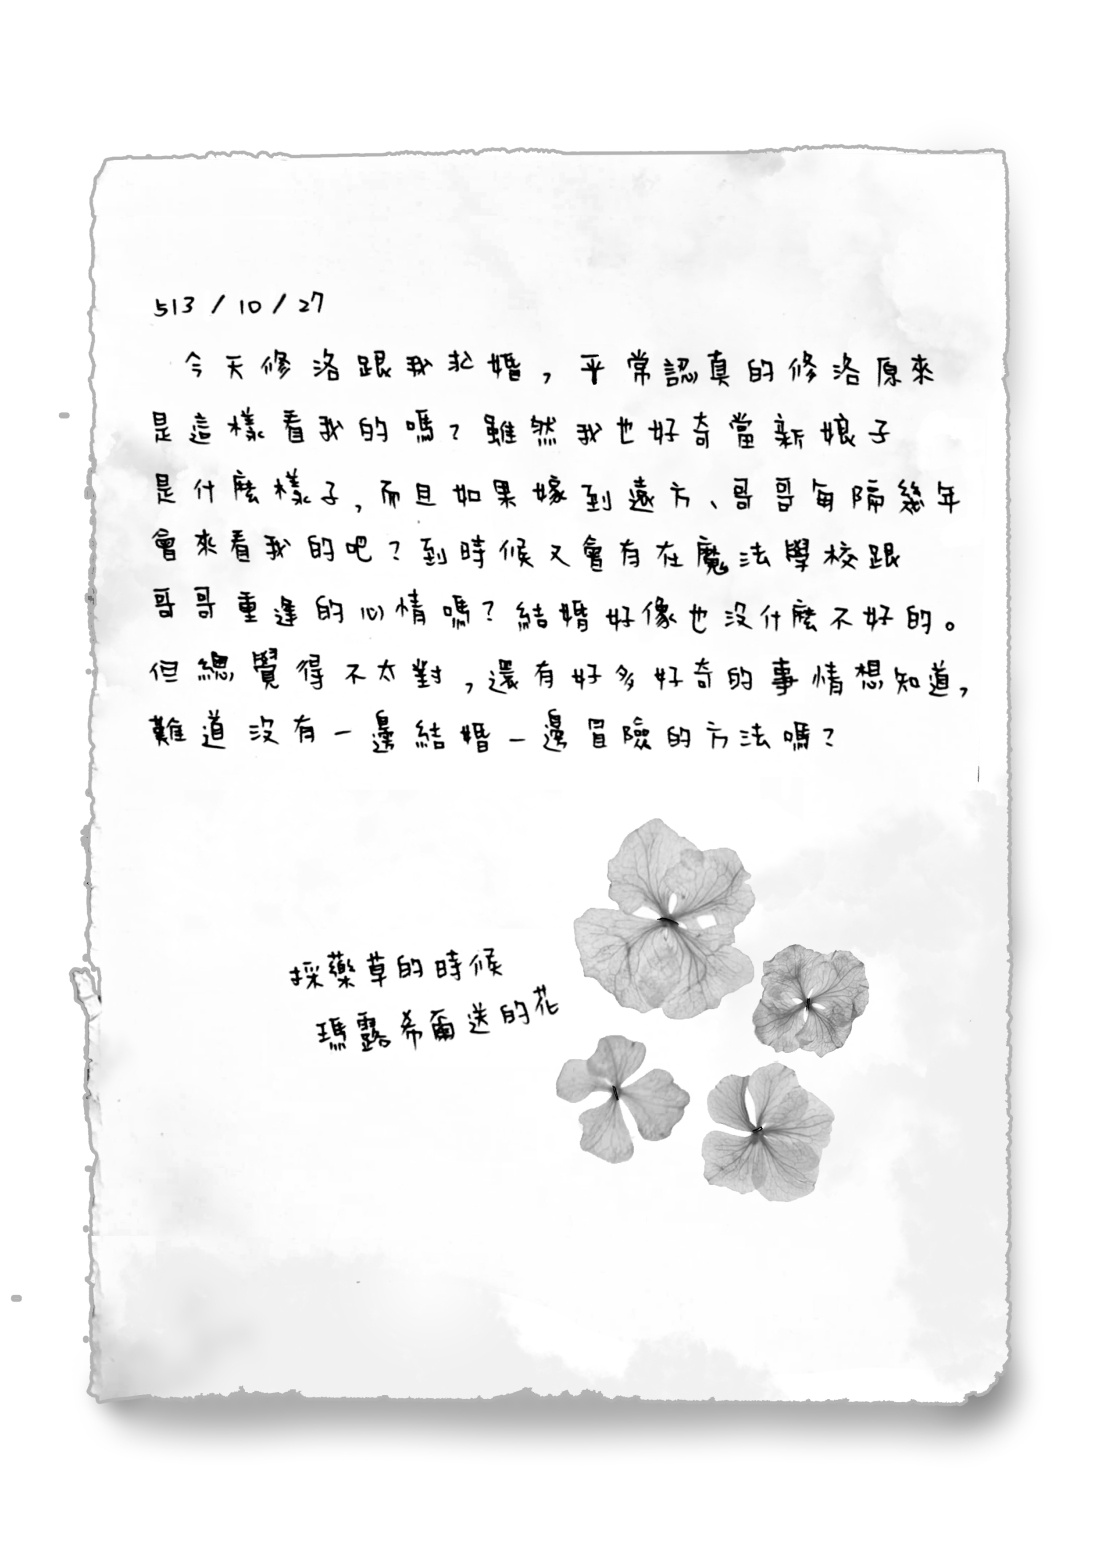 513/10/27
今天修洛跟我求婚，平常認真的修洛原來
是這樣看我的嗎？雖然我也好奇當新娘子
是什麼樣子，而且如果嫁到遠方、哥哥每隔幾年
會來看我的吧？到時候又會有在魔法學校跟
哥哥重逢的心情嗎？結婚好像也沒什麼不好的。
但總覺得不太對，還有好多好奇的事情想知道，
難道沒有一邊結婚一邊冒險的方法嗎？
採藥草的時候
瑪露希爾送的花